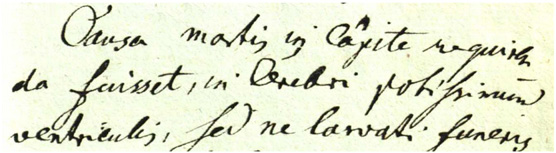 Causa mortis in Capite requiren
da fuisset, in Cerebri potissimum
ventriculis, sed ne larvati funeris